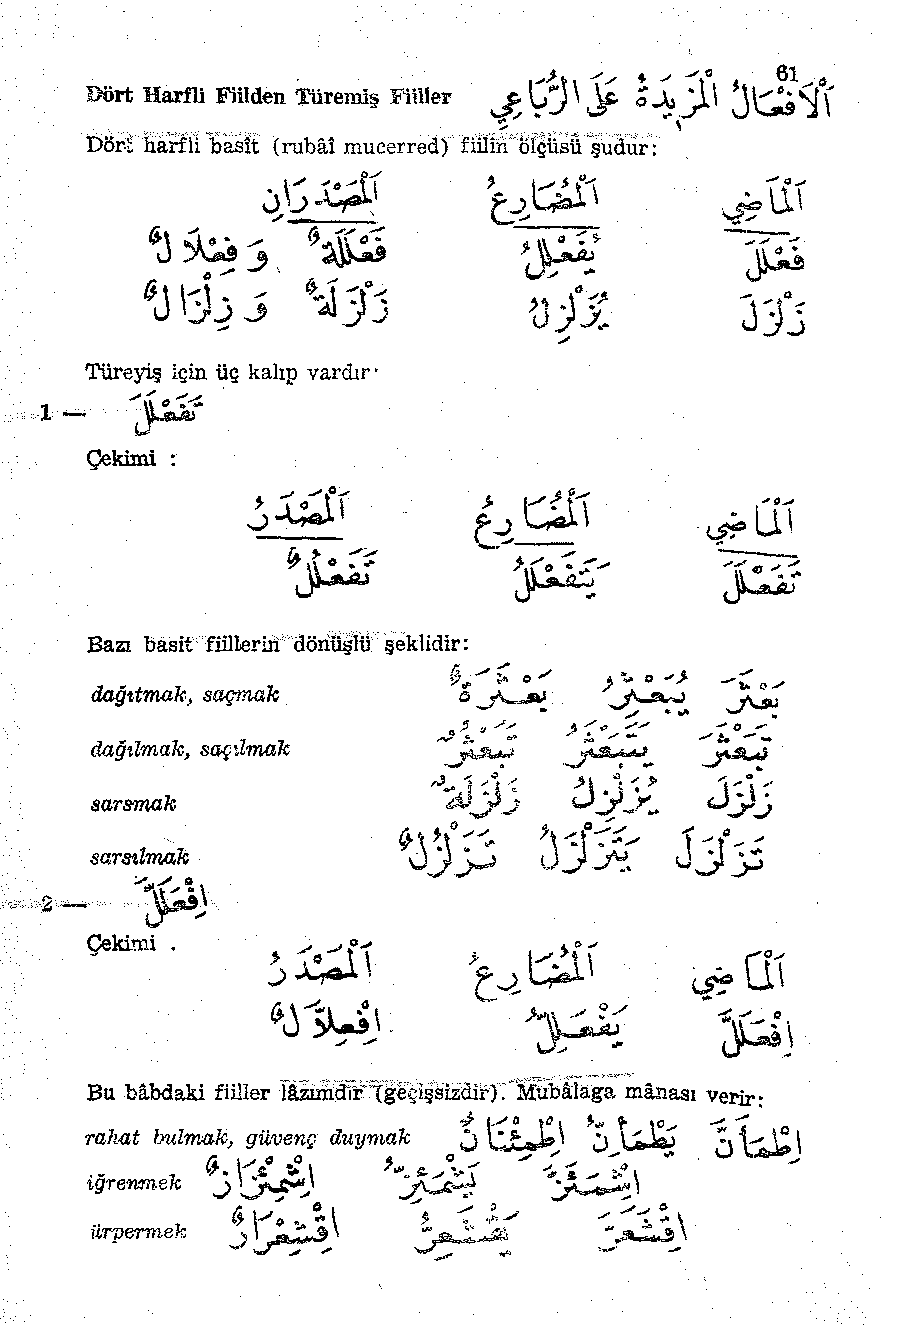 61
Dört Harfli Fiilden Türemiş Fiiller اَلْاَفْعَالُ الْمَزِيدَةُ عَلَى الرُّبَاعِي
Dört harfli basît (rubâî mucerred) fiilin ölçüsü şudur:
اَلْمَاضِي اَلْمُضَارِعُ اَلْمَصْدَرَانِ
فَعْلَلَ يُفَعْلِلُ فَعْلَلَةٌ وَ فِعْلَالٌ
زَلْزَلَ يُزَلْزِلُ زَلْزَلَةٌ وَ زِلْزَالٌ
Türeyiş için üç kalıp vardır·
1 — تَفَعْلَلَ
Çekimi :
اَلْمَاضِي اَلْمُضَارِعُ اَلْمَصْدَرُ
تَفَعْلَلَ يَتَفَعْلَلُ تَفَعْلُلٌ
Bazı basit fiillerin dönüşlü şeklidir:
dağıtmak, saçmak بَعْثَرَ يُبَعْثِرُ بَعْثَرَةٌ
dağılmak, saçılmak تَبَعْثَرَ يَتَبَعْثَرُ تَبَعْثُرٌ
sarsmak زَلْزَلَ يُزَلْزِلُ زَلْزَلَةٌ
sarsılmak تَزَلْزَلَ يَتَزَلْزَلُ تَزَلْزُلٌ
2 — اِفْعَلَلَّ
Çekimi .
اَلْمَاضِي اَلْمُضَارِعُ اَلْمَصْدَرُ
اِفْعَلَلَّ يَفْعَلِلُّ اِفْعِلَّالٌ
Bu bâbdaki fiiller lâzımdir (geçişsizdir). Mubâlaga mânası verir:
rahat bulmak, güvenç duymak اِطْمَأَنَّ يَطْمَأِنُّ اِطْمِئْنَانٌ
iğrenmek اِشْمَئَزَّ يَشْمَئِزُّ اِشْمِئْزَازٌ
ürpermek اِقْشَعَرَّ يَقْشَعِرُّ اِقْشِعْرَارٌ